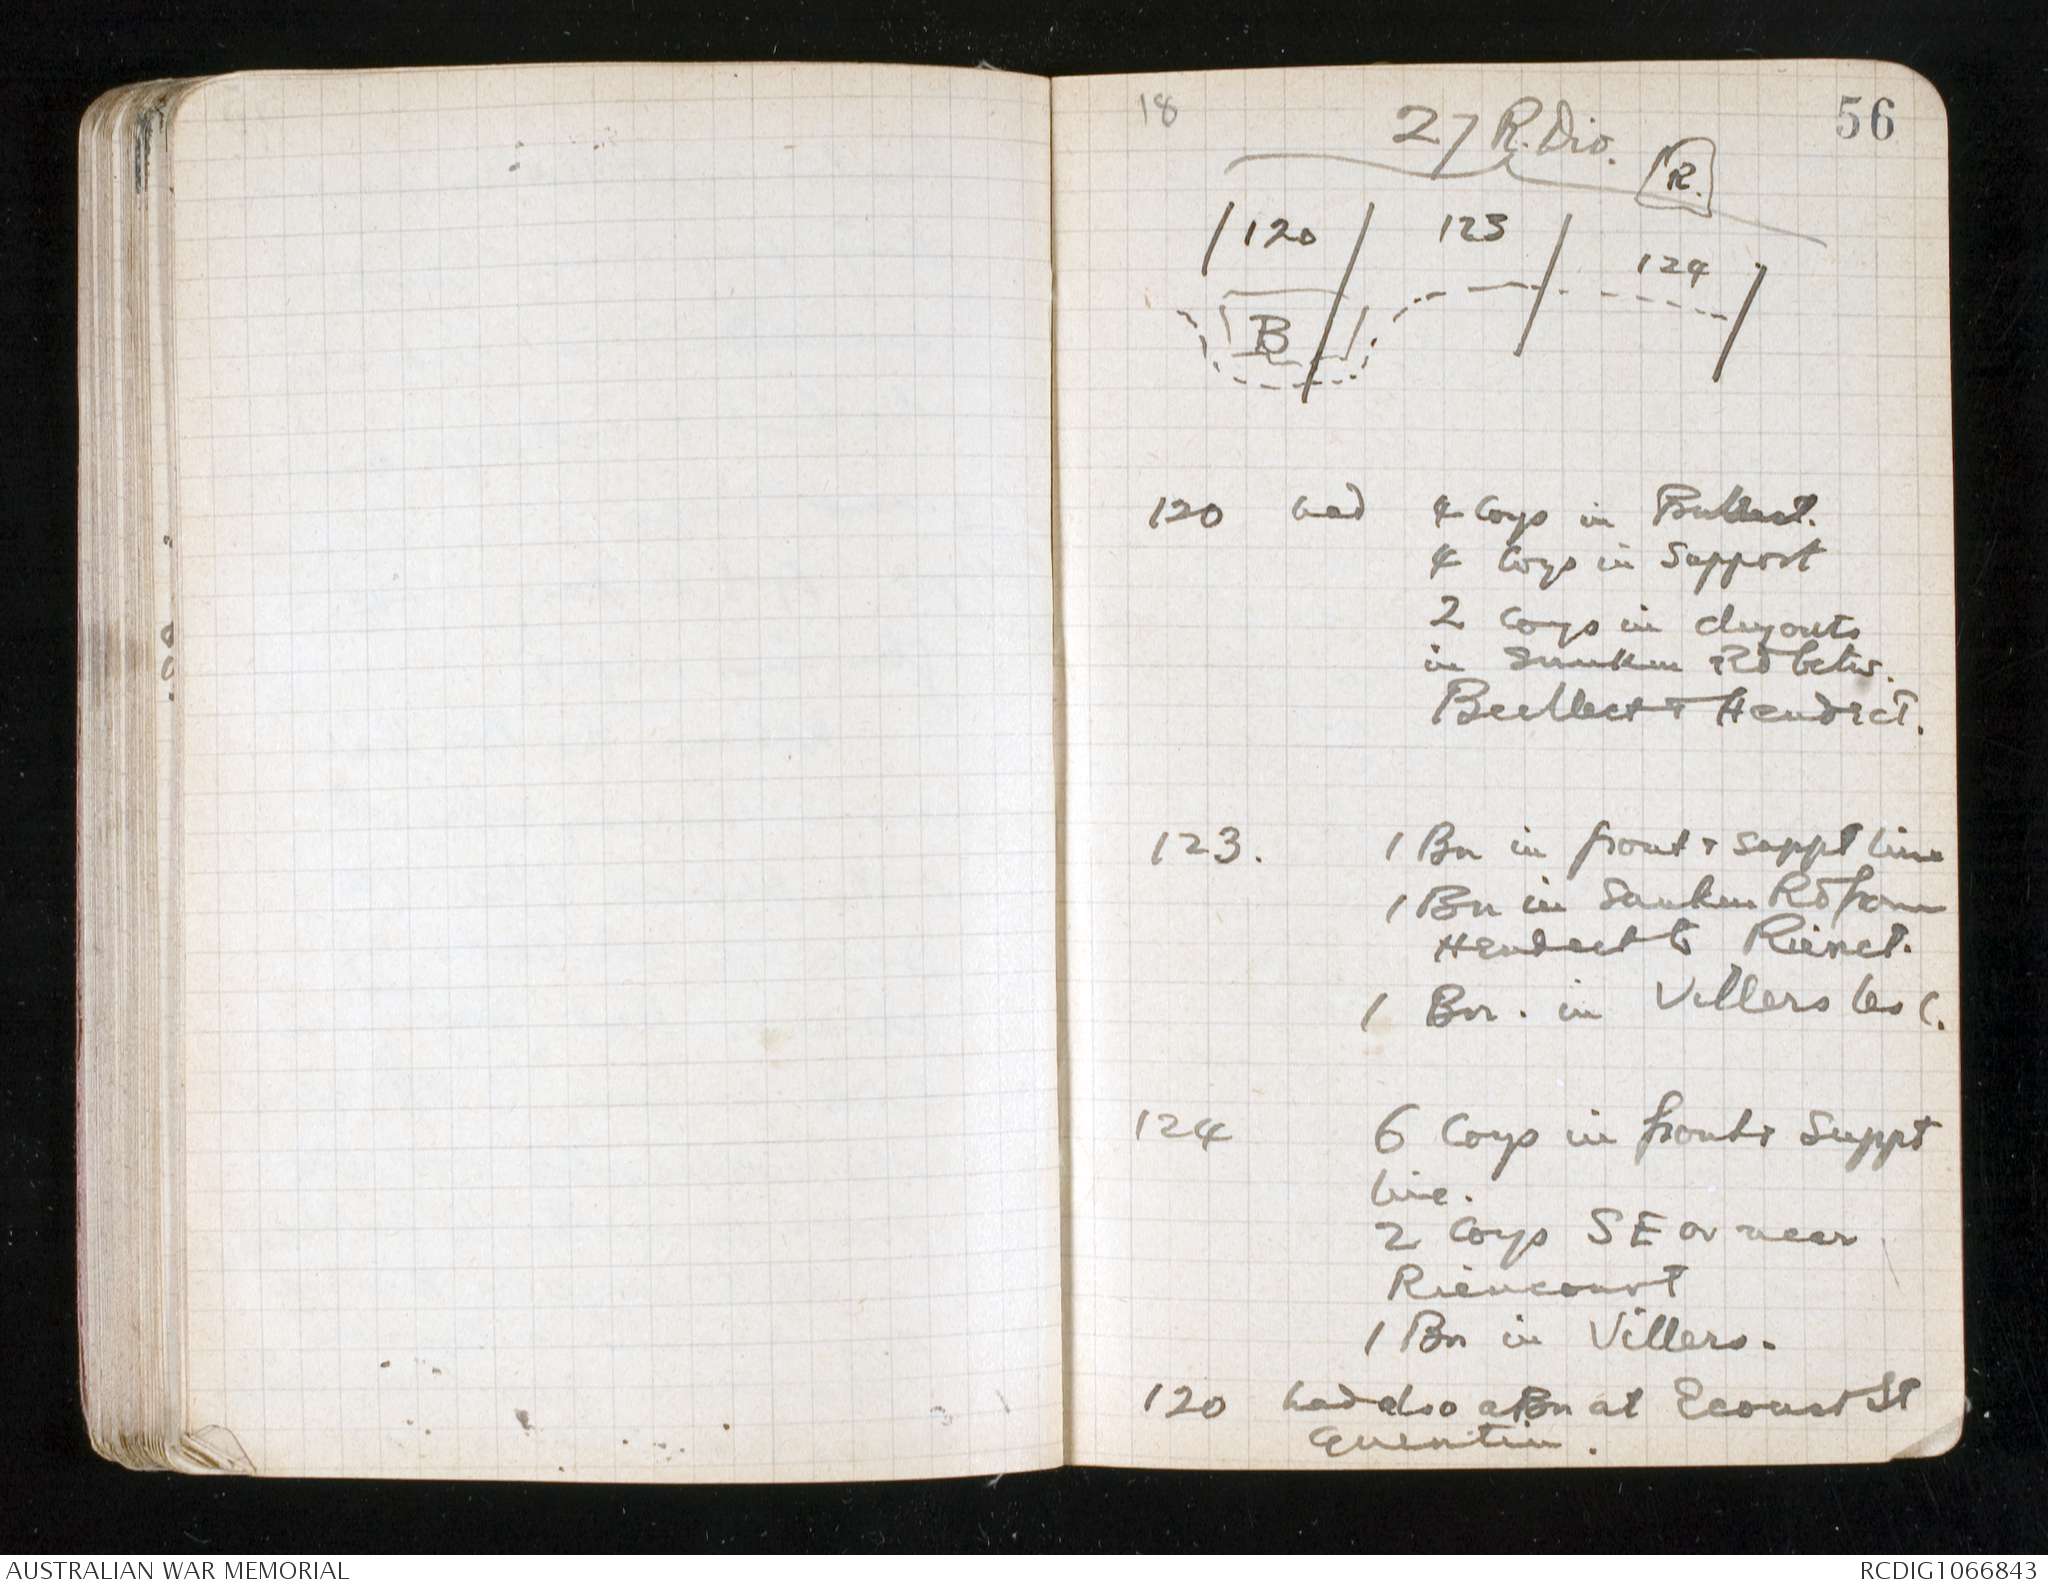 18
56
27 R. Div.
R.
120
123
124
B
120 had 4 Coys in Bullect.
4 Coys in Support
2 Coys in dugouts
in Sunken Rd betw.
Bullect + Hendect.
123. 1 Bn in front + suppt line
1 Bn in Sunken Rd from
Hendect to Rienct.
1 Bn. in Villers les C.
124 6 Coys in front + Suppt
line.
2 Coys SE or near
Riencourt
1 Bn in Villers.
120 had also a Bn at Ecoust St
Quentin.
AUSTRALIAN WAR MEMORIAL
RCDIG1066843